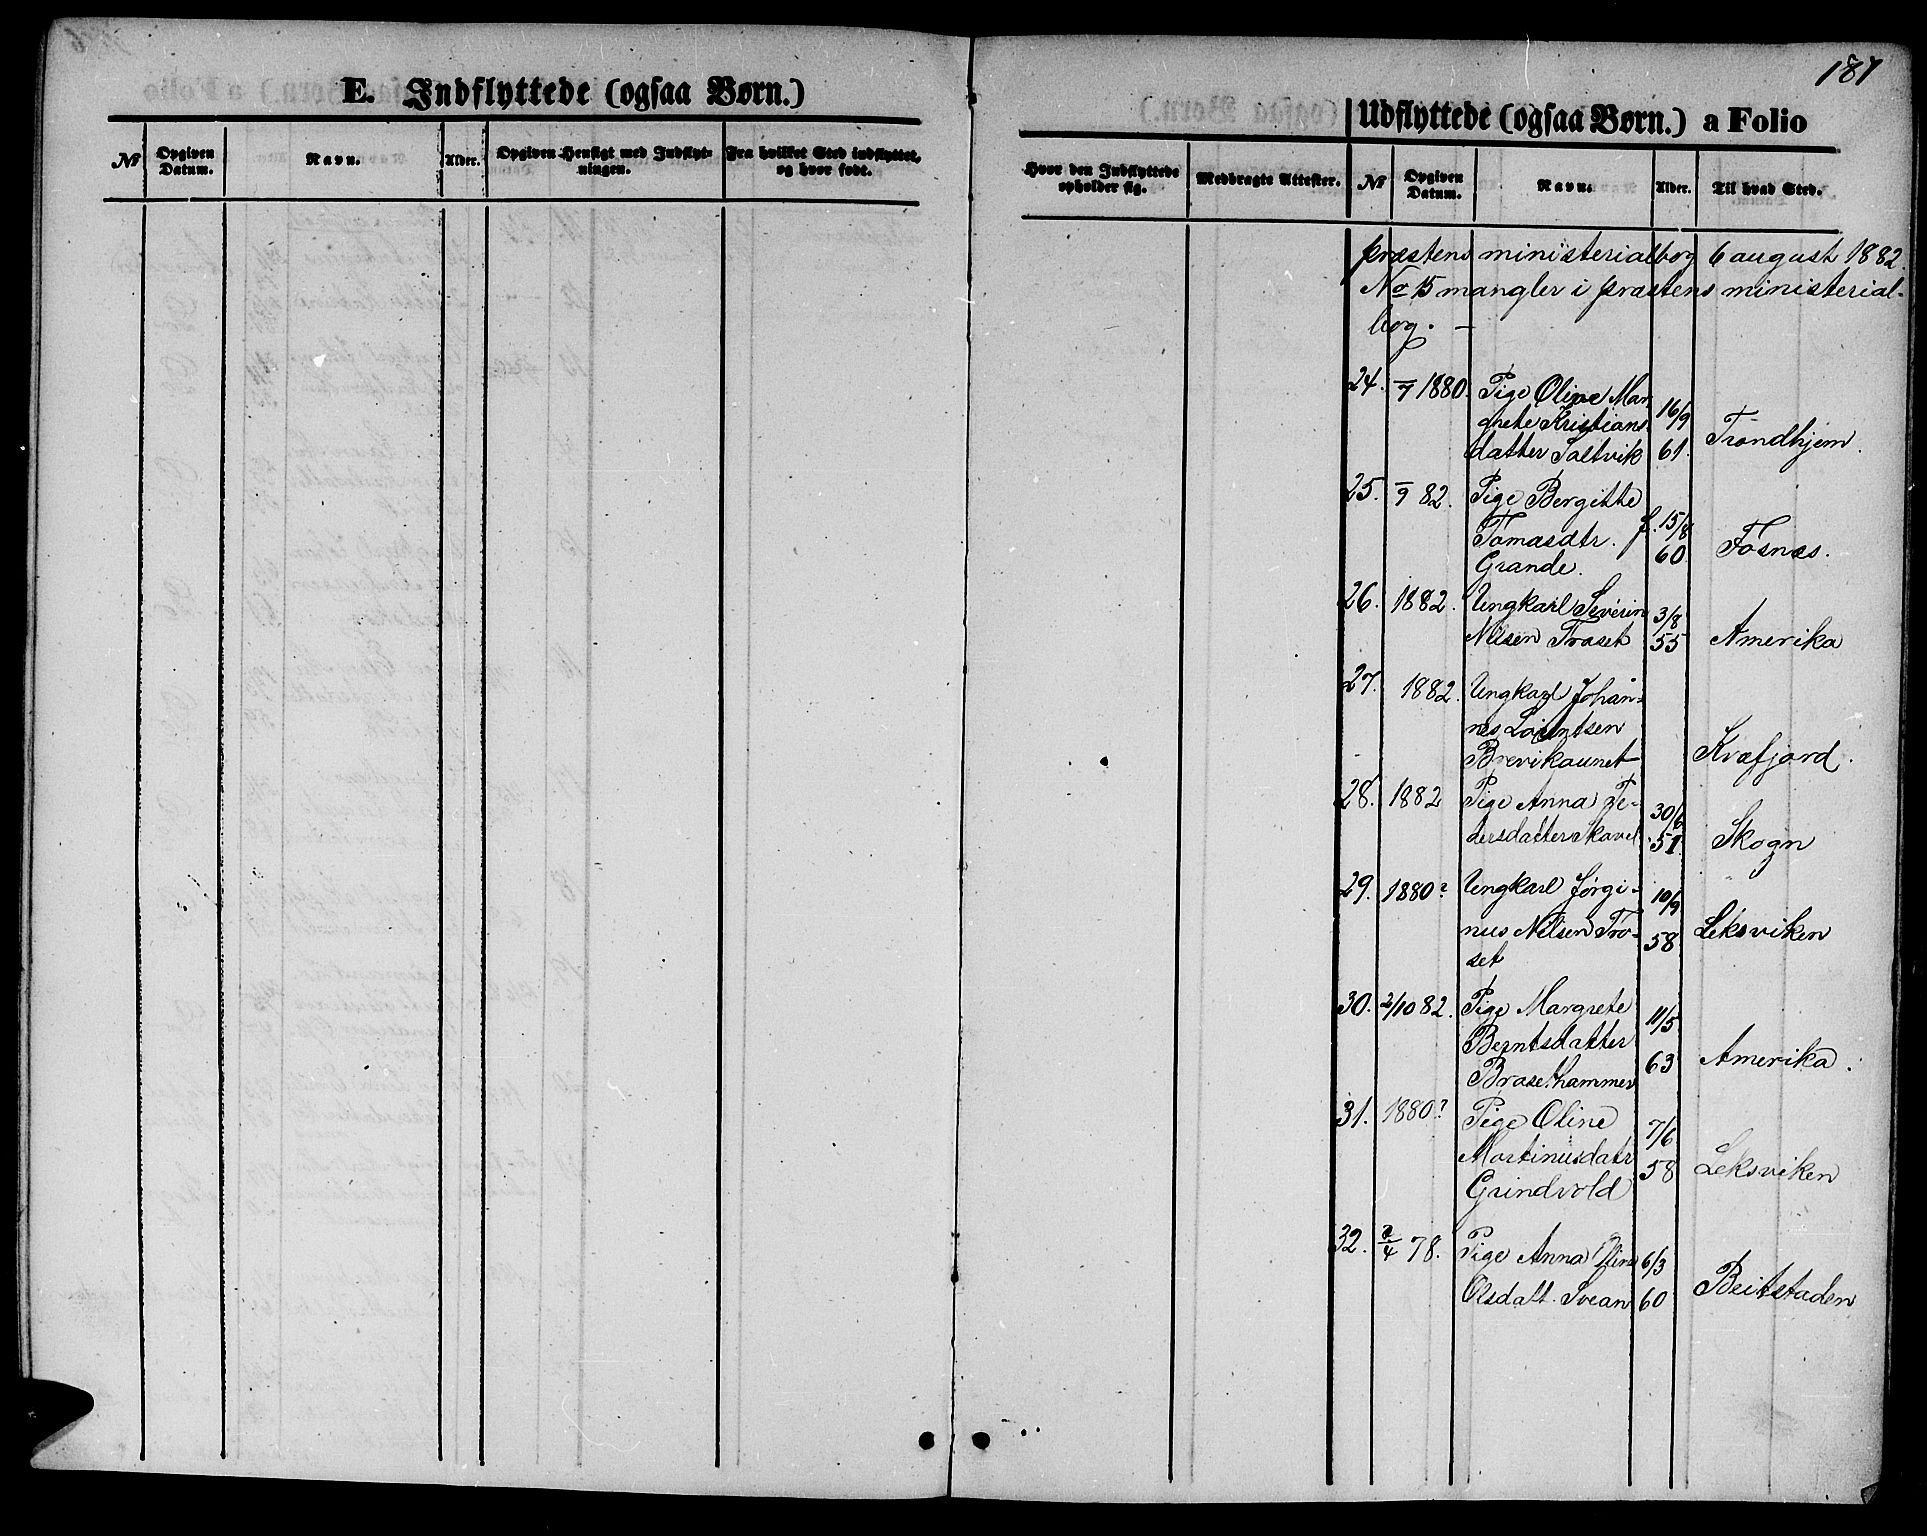 E. Indflyttede (ogsaa Børn.)
No
Opgiven
Datum.
Navn.
Alder.
Opgiven Hensigt med Indflyt-
ningen.
Fra hvilket Sted indflyttet,
og hvor født.
187
Udflyttede (ogsaa Børn.) a Folio
Hvor den Indflyttede
opholder sig.
Medbragte Attester.
No
Opgiven
Datum.
Navn.
Alder.
Til hvad Sted.
præstens ministerialbog 6 august 1882.
No 15 mangler i præstens ministerial-
bog. –
24. –/7 1880. Pige Oline Mar
grete Kristians 16/9
datter Saltvik 61. Trondhjem.
25. –/9 82. Pige Bergitte
Tomasdtr. f. 15/8
Grande. 60 Fosnes.
26. 1882. Ungkarl Severin 3/8
Nilsen Traset 55 Amerika
27. 1882. Ungkarl Johan-
nes Lorntsen
Brevikaunet Kvæfjord.
28. 1882 Pige Anna Pe- 30/6
dersdatter Skavel 51. Skogn
29. 1880? Ungkarl Jørgi- 10/9
nus Nilsen Tro- 58 Leksviken
set
30. 2/10 82. Pige Margrete 11/5
Berntsdatter
Brasethammer 63 Amerika.
31. 1880? Pige Oline 7/6
Martinusdatr 58 Leksviken
Grindvold
32. 2/4 78. Pige Anna Oline 6/3
Olsdatt. Svean 60 Beitstaden